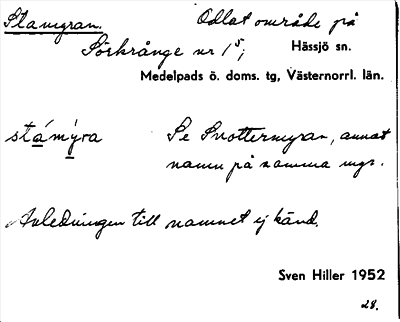 Stamyran. Odlat område på
Sörkrånge nr 1⁵; Hässjö sn.
Medelpads ö. doms. tg, Västernorrl. län.
stámýra Se Snottermyran, annat
namn på samma mgr.
Avledningen till namnet ej känd.
Sven Hiller 1952
28.